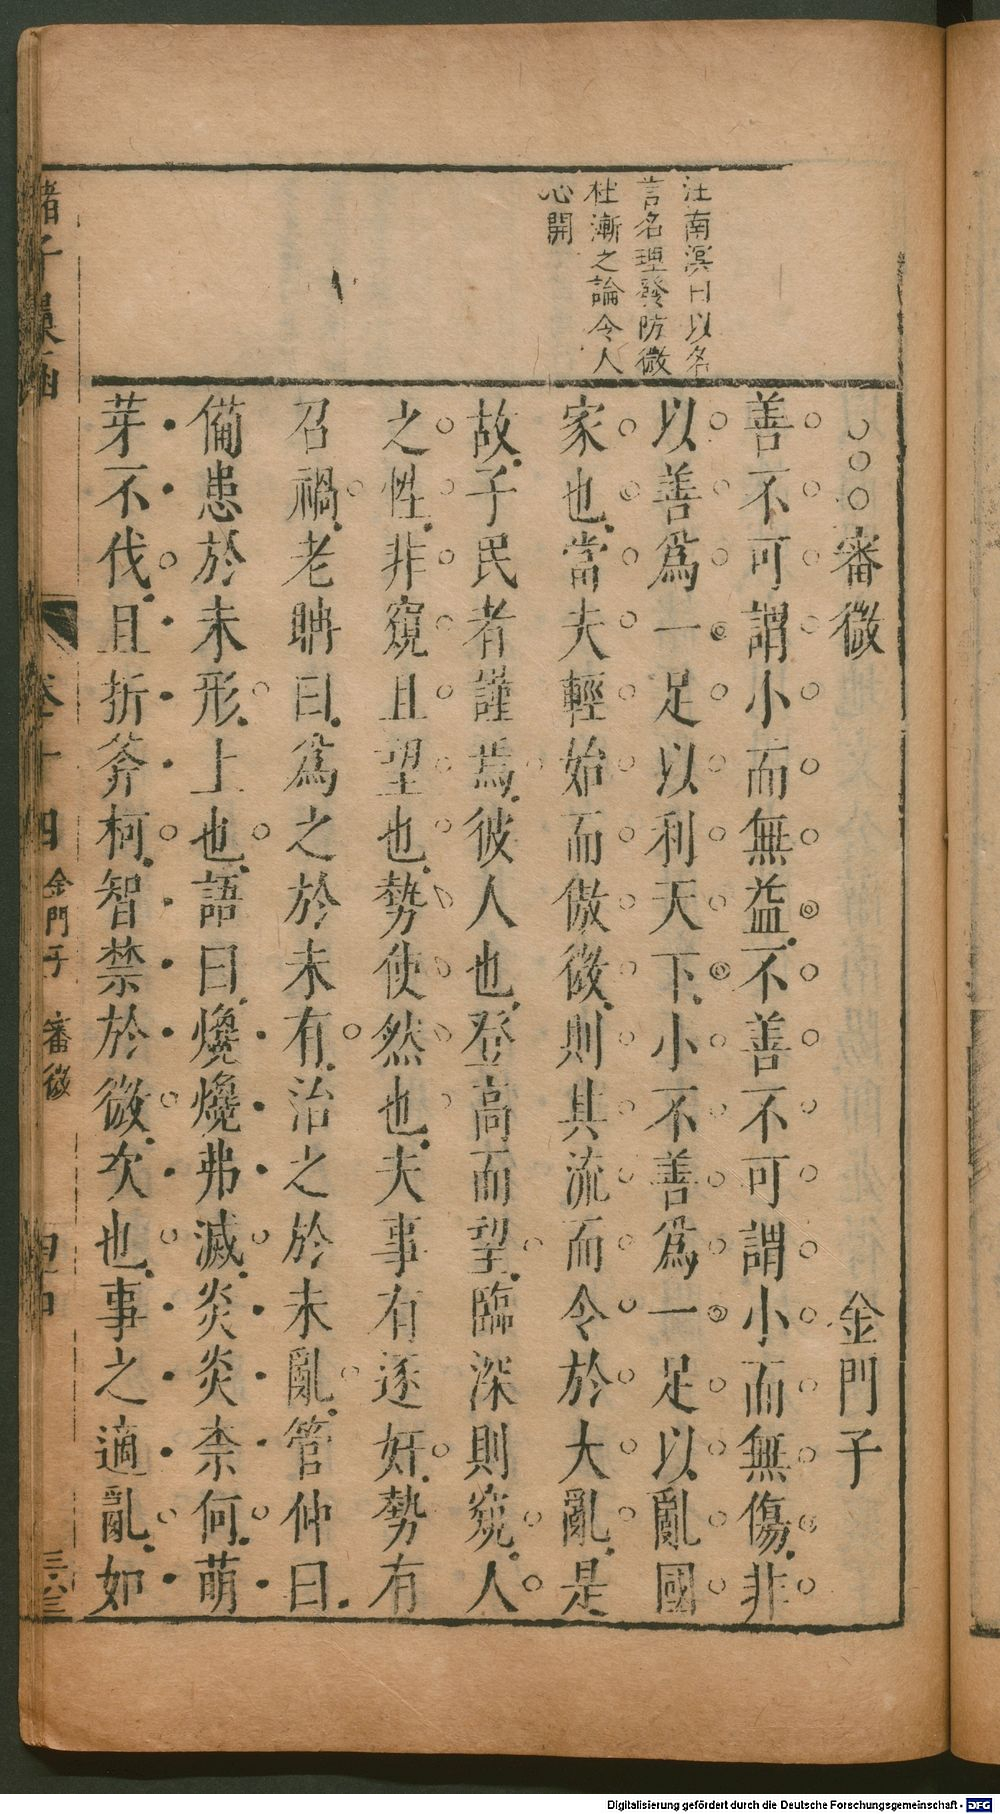 汪南溟曰以名
言名理發防微
杜漸之論令人
心開
審微 金門子
善不可謂小而無益不善不可謂小而無傷非
以善爲一足以利天下小不善爲一足以亂國
家也當夫輕始而傲微則其流而令於大亂是
故子民者謹焉彼人也登高而望臨深則窺人
之性非窺且望也勢使然也夫事有逐奸勢有
召禍老聃曰爲之於未有治之於未亂管仲曰
備患於未形上也語曰爝爝弗滅炎炎柰何萌
芽不伐且折斧柯智禁於微次也事之適亂如
諸子彙函
卷十四 金門子 審微
三六三
Digitalisierung gefördert durch die Deutsche Forschungsgemeinschaft - DFG